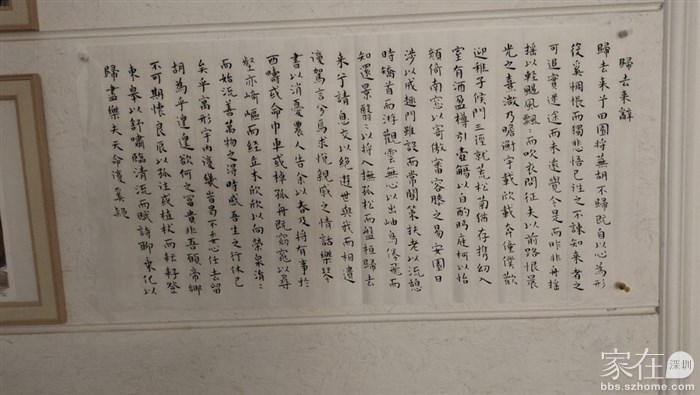 歸去来辭
歸去来兮田園将蕪胡不歸既自以心為形
役奚惆悵而獨悲悟已往之不諫知来者之
可追實迷途而未遠覺今是而昨非舟揺
揺以輕颺風飄〻而吹衣問征夫以前路恨晨
光之熹微乃瞻衡宇載欣載奔僮僕歡
迎稚子候門三徑就荒松菊猶存携幼入
室有酒盈樽引壺觴以自酌眄庭柯以怡
顔倚南窓以寄傲審容膝之易安園日
涉以成趣門雖設而常關策扶老以流憩
時矯首而游觀雲無心以出岫鳥倦飛而
知還景翳〻以将入撫孤松而盤桓歸去
来兮請息交以絕遊世與我而相遺
復駕言兮焉求悅親戚之情話樂琴
書以消憂農人告余以春及将有事於
西疇或命巾車或棹孤舟既窈窕以尋
壑亦崎嶇而經丘木欣欣以向榮泉涓〻
而始流善萬物之得時感吾生之行休已
矣乎寓形宇内復幾時曷不委心任去留
胡為乎遑遑欲何之富貴非吾願帝鄉
不可期懷良辰以孤往或植杖而耘耔登
東皋以舒嘯臨清流而賦詩聊乘化以
歸盡樂夫天命復奚疑
家在 深圳
bbs.szhome.com